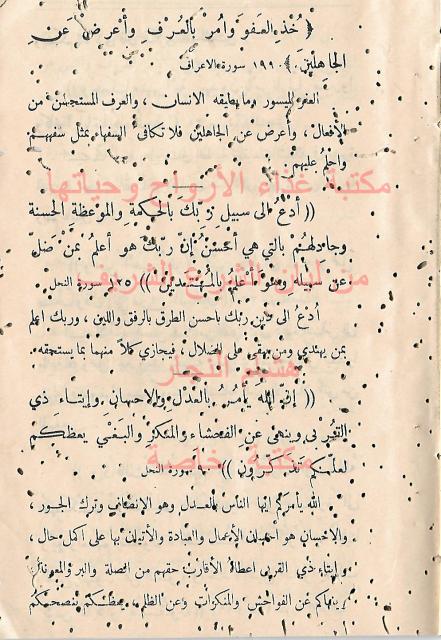 ﴿ خُذِ العَفْوَ وأمُرْ بالعُرْفِ وأعْرِضْ عَنِ
الجَاهِلِينَ ﴾ ١٩٩ سورة الاعراف
العفو الميسور وما يطيقه الانسان ، والعرف المستحسن من
الأفعال ، وأعرض عن الجاهلين فلا تكافئ السفهاء بمثل سفههم
واحلم عليهم .
مكتبة غذاء الأرواح وحياتها
(( أدعُ الى سبيلِ رَبِّكَ بالحِكمةِ والموعظةِ الحسنة
وجادِلهُم بالتي هي أحسنُ إنَّ ربَّكَ هو أعلمُ بمَنْ ضَلَّ
عن سبيله وهو أعلمُ بالمُهتدين )) ١٢٥ سورة النحل
من لبان الشرع الشريف
أدعُ الى دين ربك باحسن الطرق بالرفق واللين ، وربك اعلم
بمن يهتدي ومن يبقى على الضلال ، فيجازي كلاً منهما بما يستحقه .
هشام النجار
(( إنَّ اللهَ يأمُرُ بالعَدْلِ والإحسانِ وإيتاءِ ذي
القُربى وينهى عنِ الفحشاءِ والمنكرِ والبَغْيِ يعظكم
لعلَّكم تذكَّرُون )) سورة النحل
مكتبة خاصة
الله يأمركم ايها الناس بالعدل وهو الإنصاف وترك الجور ،
والإحسان هو الأعمال والعبادة والأتيان بها على اكمل حال ،
وإيتاء ذي القربى اعطاء الأقارب حقهم من الصلة والبر والمعروف
وينهاكم عن الفواحش والمنكرات وعن الظلم ، يعظكم بنصحكم